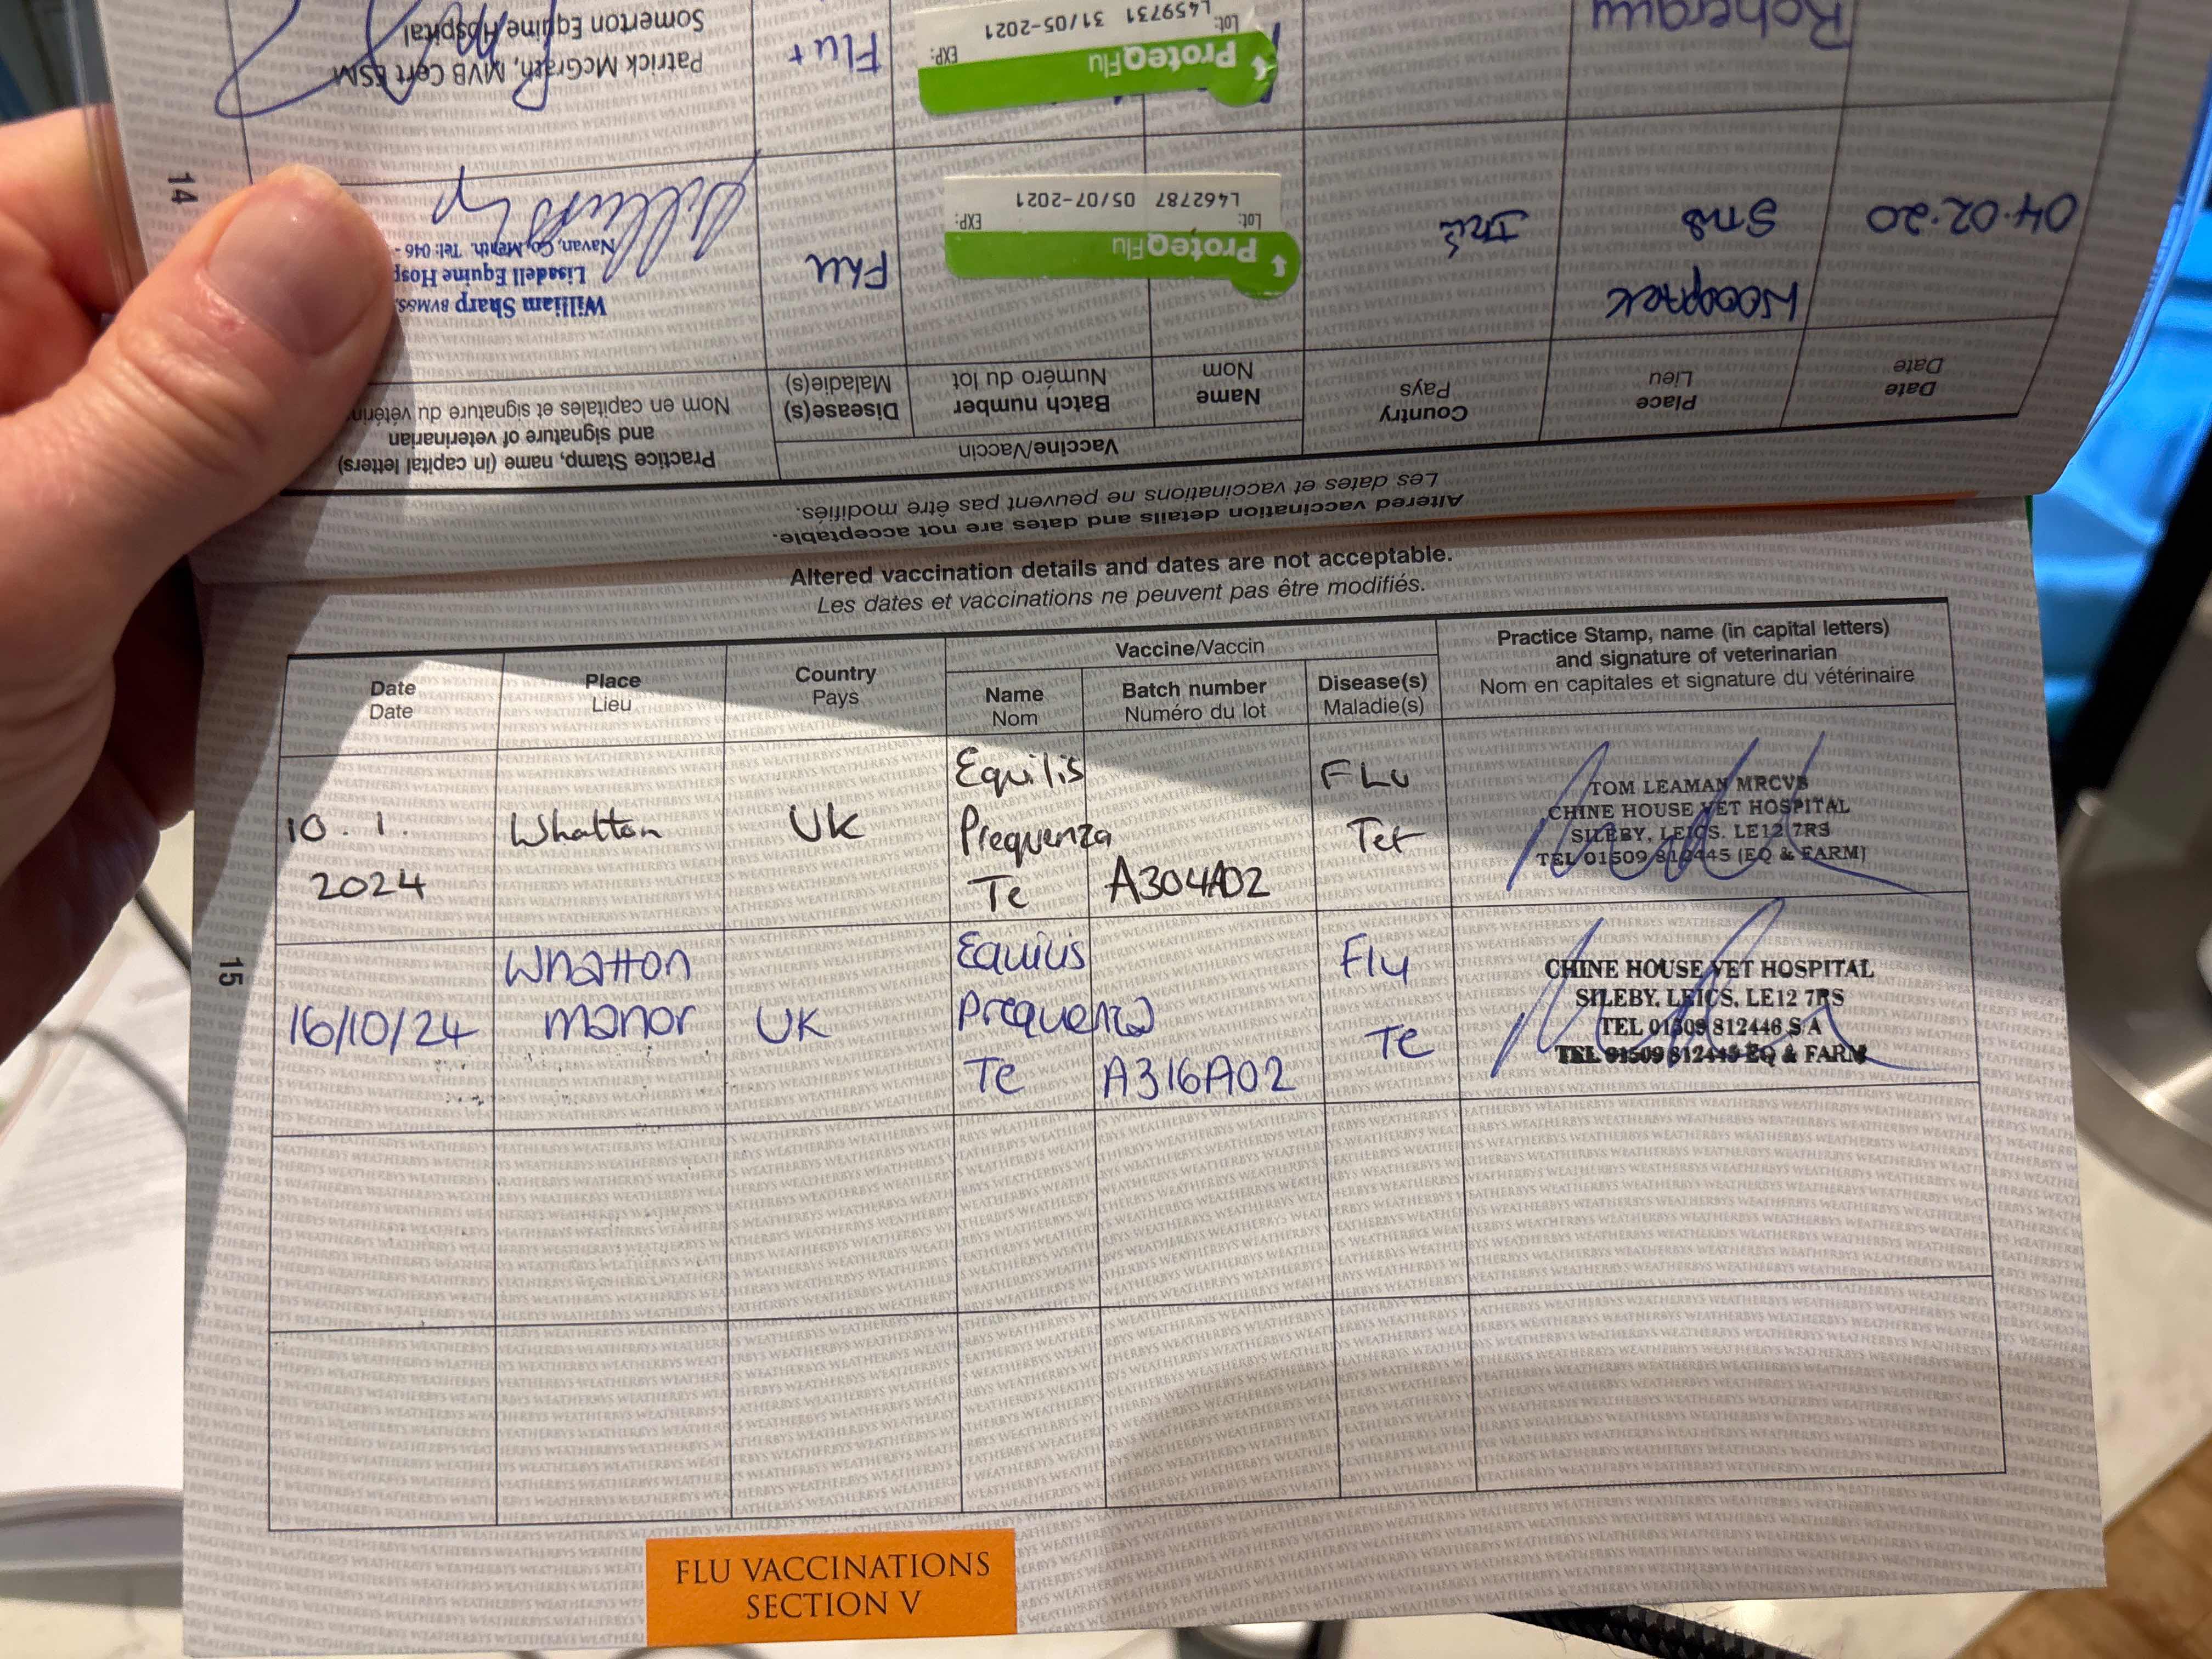 Altered vaccination details and dates are not acceptable.
Les dates et vaccinations ne peuvent pas être modifiés.
Date
Date
Place
Lieu
Country
Pays
Vaccine/Vaccin
Name
Nom
Batch number
Numéro du lot
Disease(s)
Maladie(s)
Practice Stamp, name (in capital letters)
and signature of veterinarian
Nom en capitales et signature du vétérin
04.02.20
Sns
Irl
ProteqFlu
Lot:
EXP:
L462787 05/07-2021
Flu
William Sharp BVM&S,
Lisadell Equine Hosp
Navan, Co. Meath. Tel: 046 -
ProteqFlu
Lot:
EXP:
L459731 31/05-2021
Flu+
Patrick McGrath, MVB Cert ESM
Somerton Equine Hospital
14
Altered vaccination details and dates are not acceptable.
Les dates et vaccinations ne peuvent pas être modifiés.
Date
Date
Place
Lieu
Country
Pays
Vaccine/Vaccin
Name
Nom
Batch number
Numéro du lot
Disease(s)
Maladie(s)
Practice Stamp, name (in capital letters)
and signature of veterinarian
Nom en capitales et signature du vétérinaire
10.1.
2024
Whatton
UK
Equilis
Prequenza
Te
A304A02
FLu
Tet
TOM LEAMAN MRCVS
CHINE HOUSE VET HOSPITAL
SILEBY, LEICS. LE12 7RS
TEL 01509 812445 (EQ & FARM)
16/10/24
Whatton
manor
UK
Equilis
Prequenza
Te
A316A02
Flu
Te
CHINE HOUSE VET HOSPITAL
SILEBY, LEICS, LE12 7RS
TEL 01509 812446 SA
TEL 01509 812445 EQ & FARM
15
FLU VACCINATIONS
SECTION V